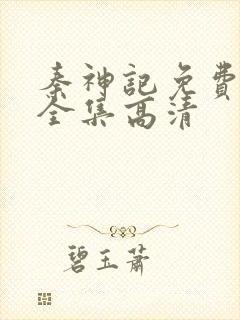 秦神记免费
全集高清
碧玉萧